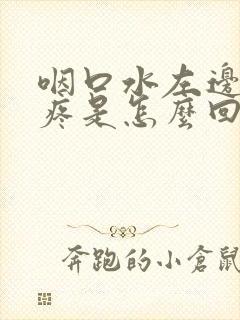 咽口水左邊
疼是怎麼回
奔跑的小倉鼠